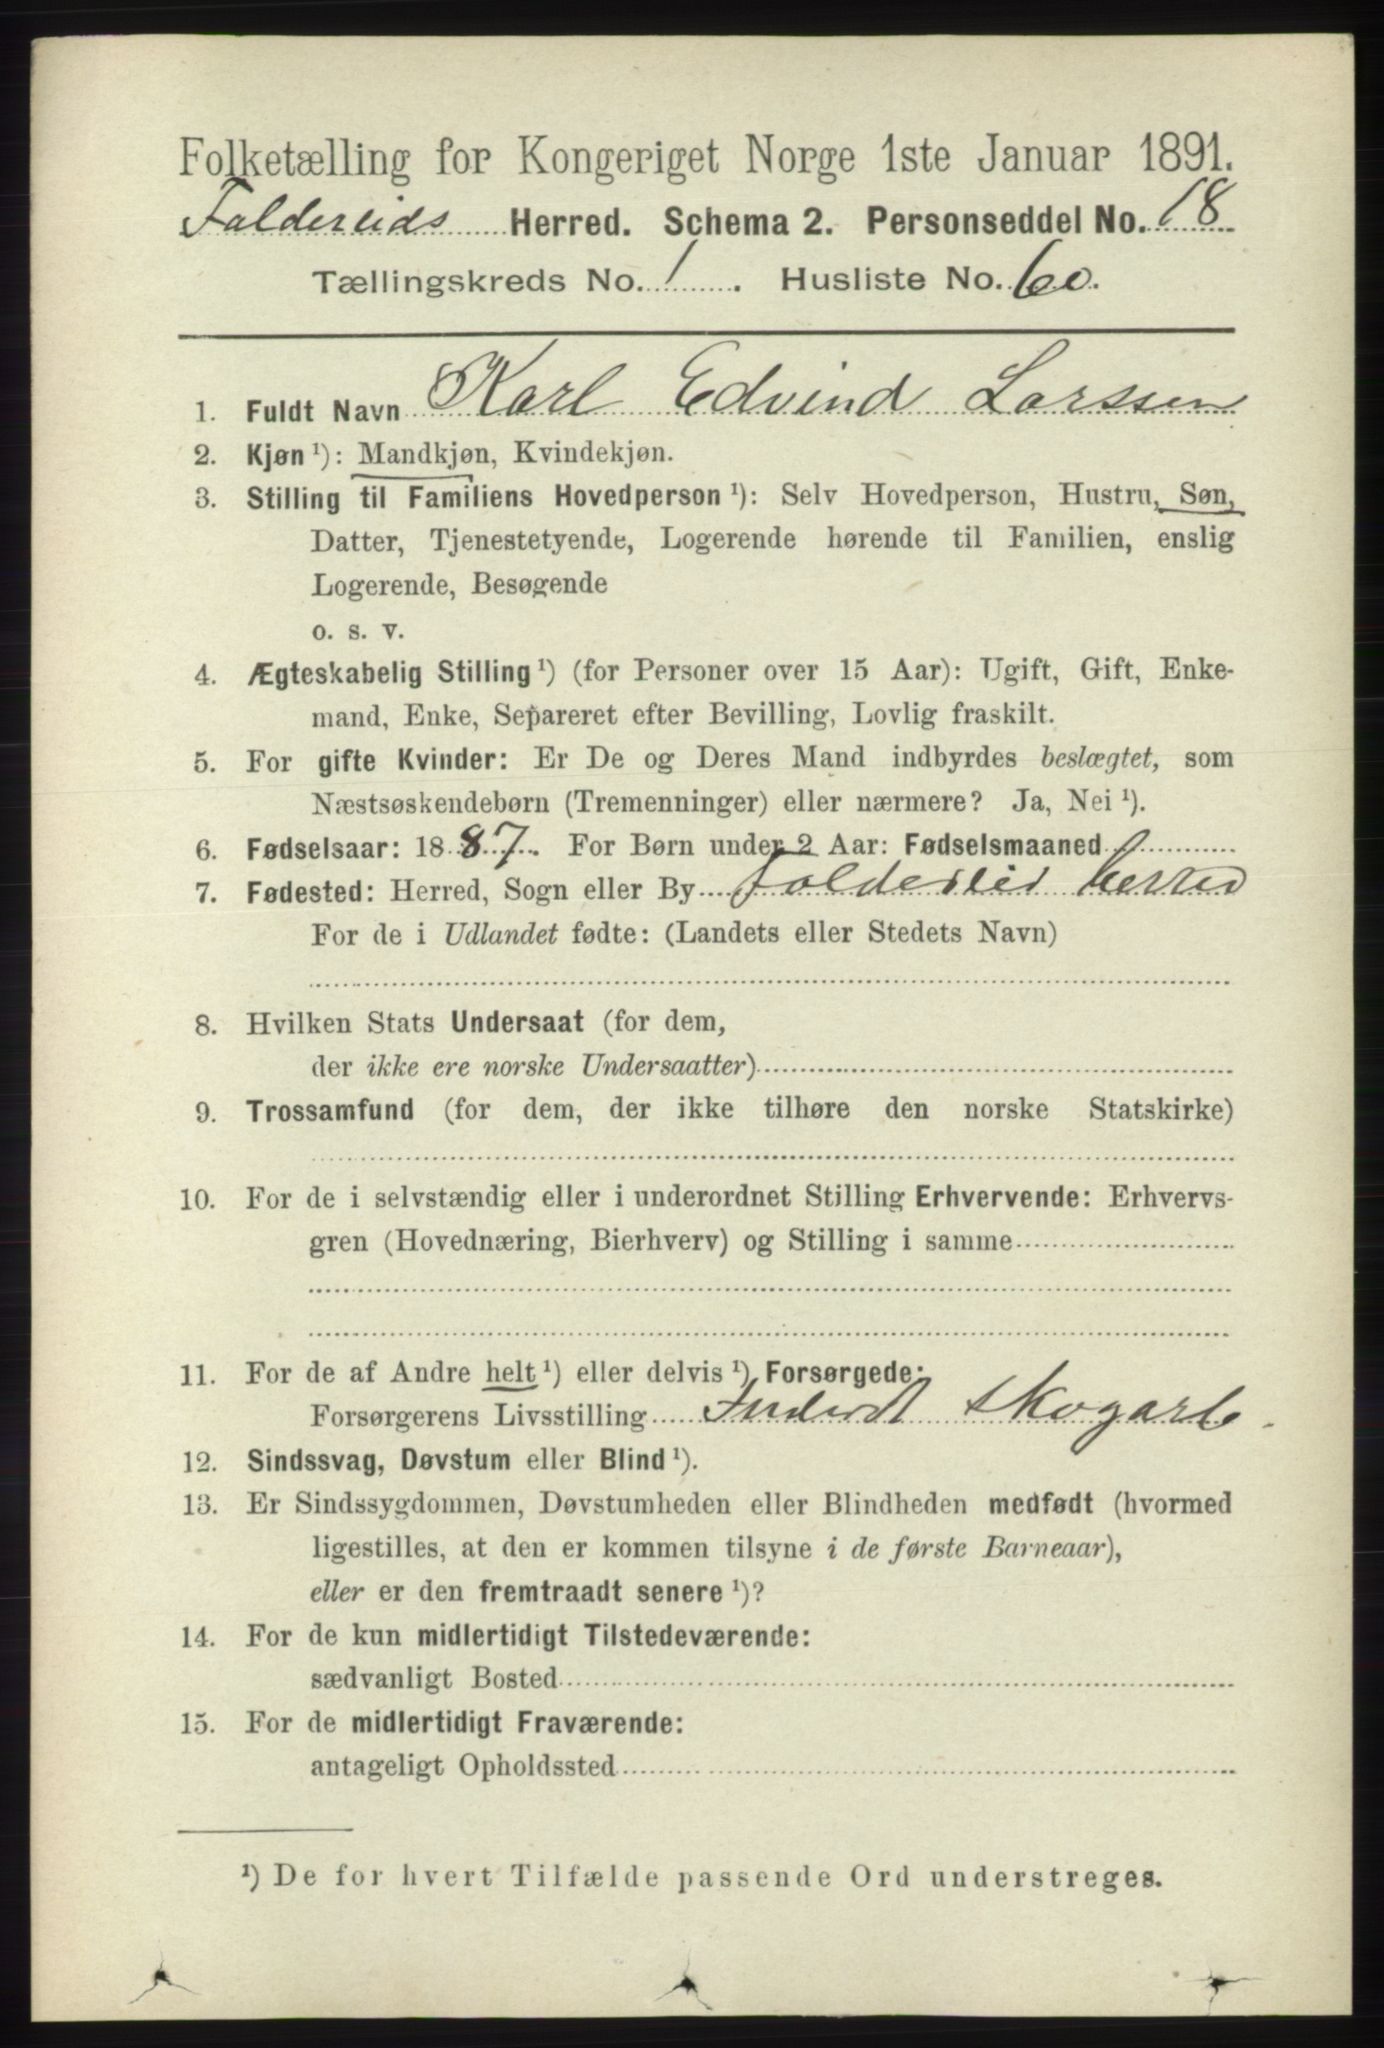 Folketælling for Kongeriget Norge 1ste Januar 1891.
Foldereids Herred. Schema 2. Personseddel No. 18
Tællingskreds No. 1. Husliste No. 60.
1. Fuldt Navn Karl Edvind Larssen
2. Kjøn ¹): Mandkjøn, Kvindekjøn.
3. Stilling til Familiens Hovedperson ¹): Selv Hovedperson, Hustru, Søn,
Datter, Tjenestetyende, Logerende hørende til Familien, enslig
Logerende, Besøgende
o. s. v.
4. Ægteskabelig Stilling ¹) (for Personer over 15 Aar): Ugift, Gift, Enke-
mand, Enke, Separeret efter Bevilling, Lovlig fraskilt.
5. For gifte Kvinder: Er De og Deres Mand indbyrdes beslægtet, som
Næstsøskendebørn (Tremenninger) eller nærmere? Ja, Nei ¹).
6. Fødselsaar: 1887. For Børn under 2 Aar: Fødselsmaaned
7. Fødested: Herred, Sogn eller By Foldereid herred
For de i Udlandet fødte: (Landets eller Stedets Navn)
8. Hvilken Stats Undersaat (for dem,
der ikke ere norske Undersaatter)
9. Trossamfund (for dem, der ikke tilhøre den norske Statskirke)
10. For de i selvstændig eller i underordnet Stilling Erhvervende: Erhvervs-
gren (Hovednæring, Bierhverv) og Stilling i samme
11. For de af Andre helt ¹) eller delvis ¹) Forsørgede:
Forsørgerens Livsstilling Inderst skogarb.
12. Sindssvag, Døvstum eller Blind ¹).
13. Er Sindssygdommen, Døvstumheden eller Blindheden medfødt (hvormed
ligestilles, at den er kommen tilsyne i de første Barneaar),
eller er den fremtraadt senere ¹)?
14. For de kun midlertidigt Tilstedeværende:
sædvanligt Bosted
15. For de midlertidigt Fraværende:
antageligt Opholdssted
¹) De for hvert Tilfælde passende Ord understreges.